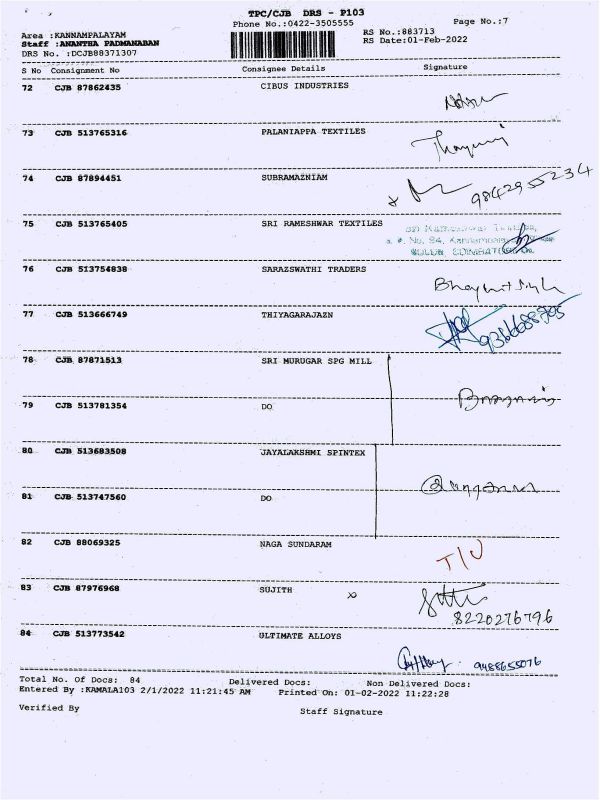 TPC/CJB DRS - P103
Phone No.:0422-3505555 Page No.:7
Area :KANNAMPALAYAM RS No.:883713
Staff :ANANTHA PADMANABAN RS Date:01-Feb-2022
DRS No. :DCJB88371307
S No Consignment No Consignee Details Signature
72 CJB 87862435 CIBUS INDUSTRIES
73 CJB 513765316 PALANIAPPA TEXTILES
74 CJB 87894451 SUBRAMAZNIAM 9842955234
75 CJB 513765405 SRI RAMESHWAR TEXTILES
76 CJB 513754838 SARAZSWATHI TRADERS
77 CJB 513666749 THIYAGARAJAZN
78 CJB 87871513 SRI MURUGAR SPG MILL
79 CJB 513781354 DO
80 CJB 513683508 JAYALAKSHMI SPINTEX
81 CJB 513747560 DO
82 CJB 88069325 NAGA SUNDARAM
83 CJB 87976968 SUJITH x
8220276796
84 CJB 513773542 ULTIMATE ALLOYS
9488655076
Total No. Of Docs: 84 Delivered Docs: Non Delivered Docs:
Entered By :KAMALA103 2/1/2022 11:21:45 AM Printed On: 01-02-2022 11:22:28
Verified By Staff Signature